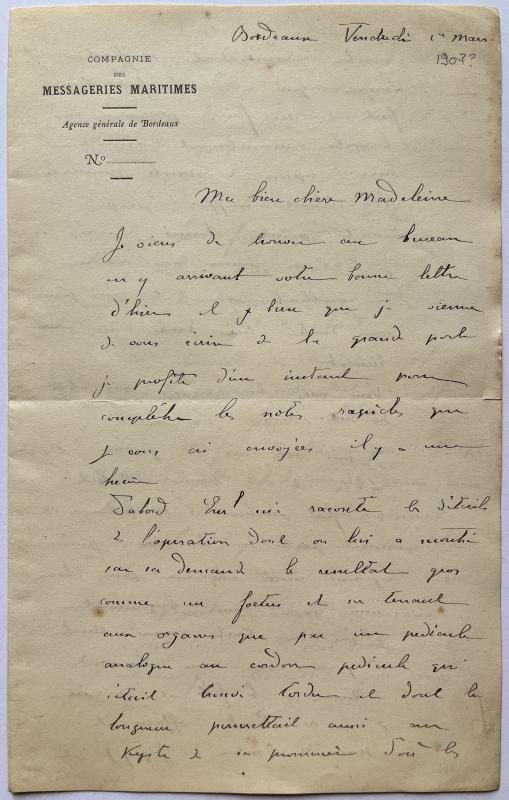 Bordeaux Vendredi 1er Mars
1907?
COMPAGNIE
DES
MESSAGERIES MARITIMES
Agence générale de Bordeaux
No
Ma bien chère Madeleine
Je viens de trouver au bureau
en y arrivant votre bonne lettre
d'hier et bien que je vienne
de vous écrire de la grande poste
je profite d'un instant pour
compléter les notes rapides que
je vous ai envoyées il y a une
heure
D'abord m'a raconté les détails
de l'opération dont on lui a montré
sur sa demande le résultat gros
comme un foetus et ne tenant
aux organes que par un pédicule
analogue au cordon pédicule qui
s'était trouvé tordu et dont la
longueur permettait aussi au
Kyste de se promener d'où les